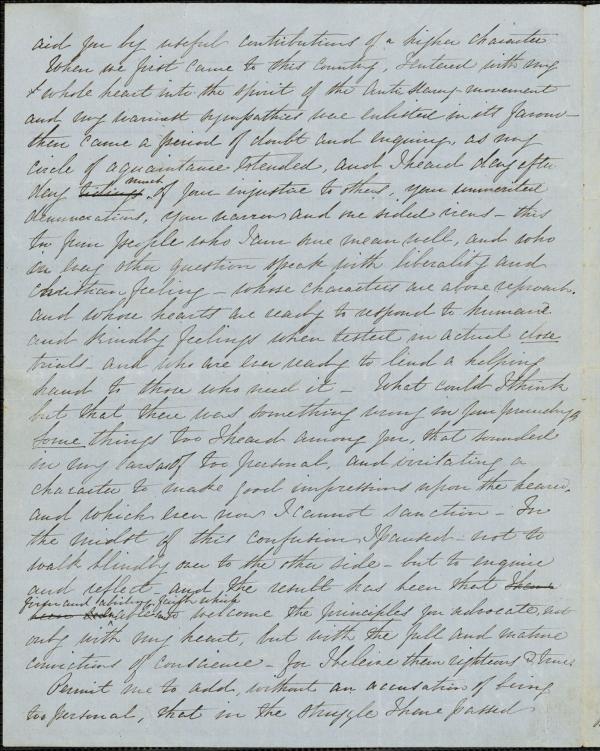 aid you by useful contributions of a higher character
When we first came to this country, I entered with my
& whole heart into the spirit of the Anti Slavery movement
and my warmest sympathies were enlisted in its favour –
then came a period of doubt and enquiry, as my
circle of aquaintance extended, and I heard day after
day of your injustice to others, your unmerited
denunciations, your narrow and one sided views – this
too from people who I am sure mean well, and who
on every other question speak with liberality and
Christian feeling – whose characters are above reproach.
and whose hearts are ready to respond to humane
and kindly feelings when tested in actual close
trials – and who are ever ready to lend a helping
hand to those who need it – What could I think
but that there was something wrong in your proceedings
some things too I heard among you, that sounded
in my ears as of too personal, and irritating a
character to make good impressions upon the hearer,
and which even now I cannot sanction – In
the midst of this confusion I paused – not to
walk blindly over to the other side – but to enquire
and reflect and the result has been that
firm and abiding faith which
welcome the principles you advocate, not
only with my heart, but with the full and mature
convictions of conscience – for I beleive them righteous & true.
Permit me to add, without an accusation of being
too personal, that in the struggle I have passed